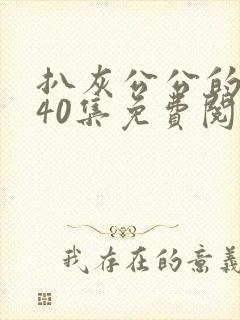 扒灰公公的
40集免費閱
我存在的意義